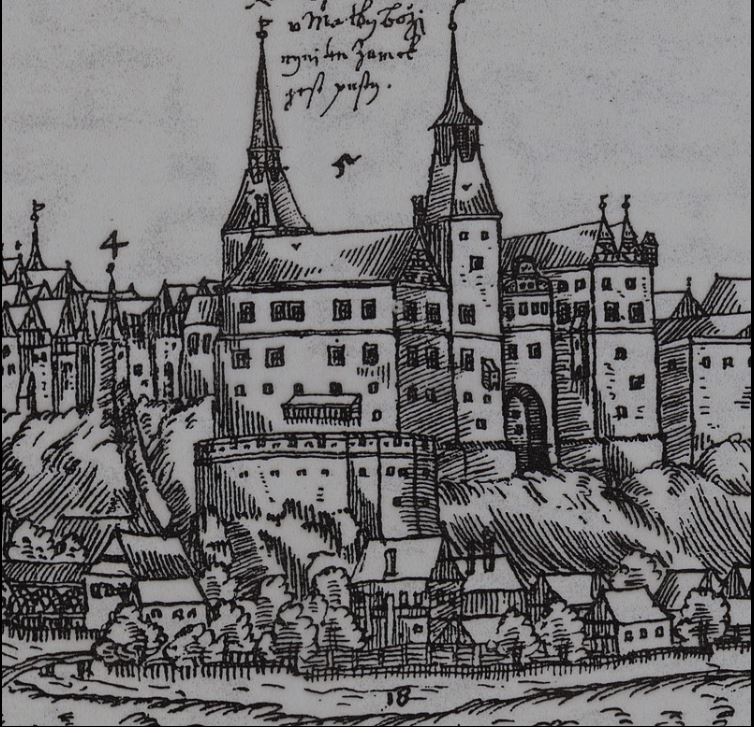 u Matky boží
nyní ten zamek
gest pusty.
4
18